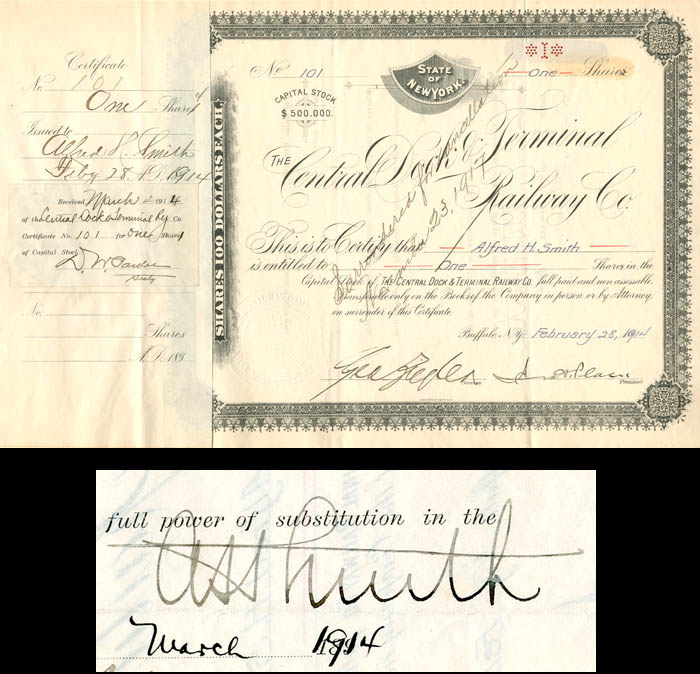 Certificate
No. 101
of
One Shares
Issued to
Alfred H. Smith
Feby 28 A.D. 1914
Received March 4 1914
of the Central Dock & Terminal Ry Co.
Certificate No. 101 for One Share
of Capital Stock
No.
Shares
A.D. 189
SHARES 100 DOLLARS EACH.
No 101
STATE
OF
NEW YORK.
1
One Shares
CAPITAL STOCK
$500.000.
THE
Central Dock & Terminal
Railway Co.
This is to Certify that Alfred H. Smith
is entitled to One Shares in the
Capital Stock of THE CENTRAL DOCK & TERMINAL RAILWAY CO. full paid and non assessable.
Transferable only on the Books of the Company in person or by Attorney,
on surrender of this Certificate.
Buffalo, N.Y. February 28, 1914
President
Surrendered for Cancellation
23, 191
full power of substitution in the
A H Smith
March 1914